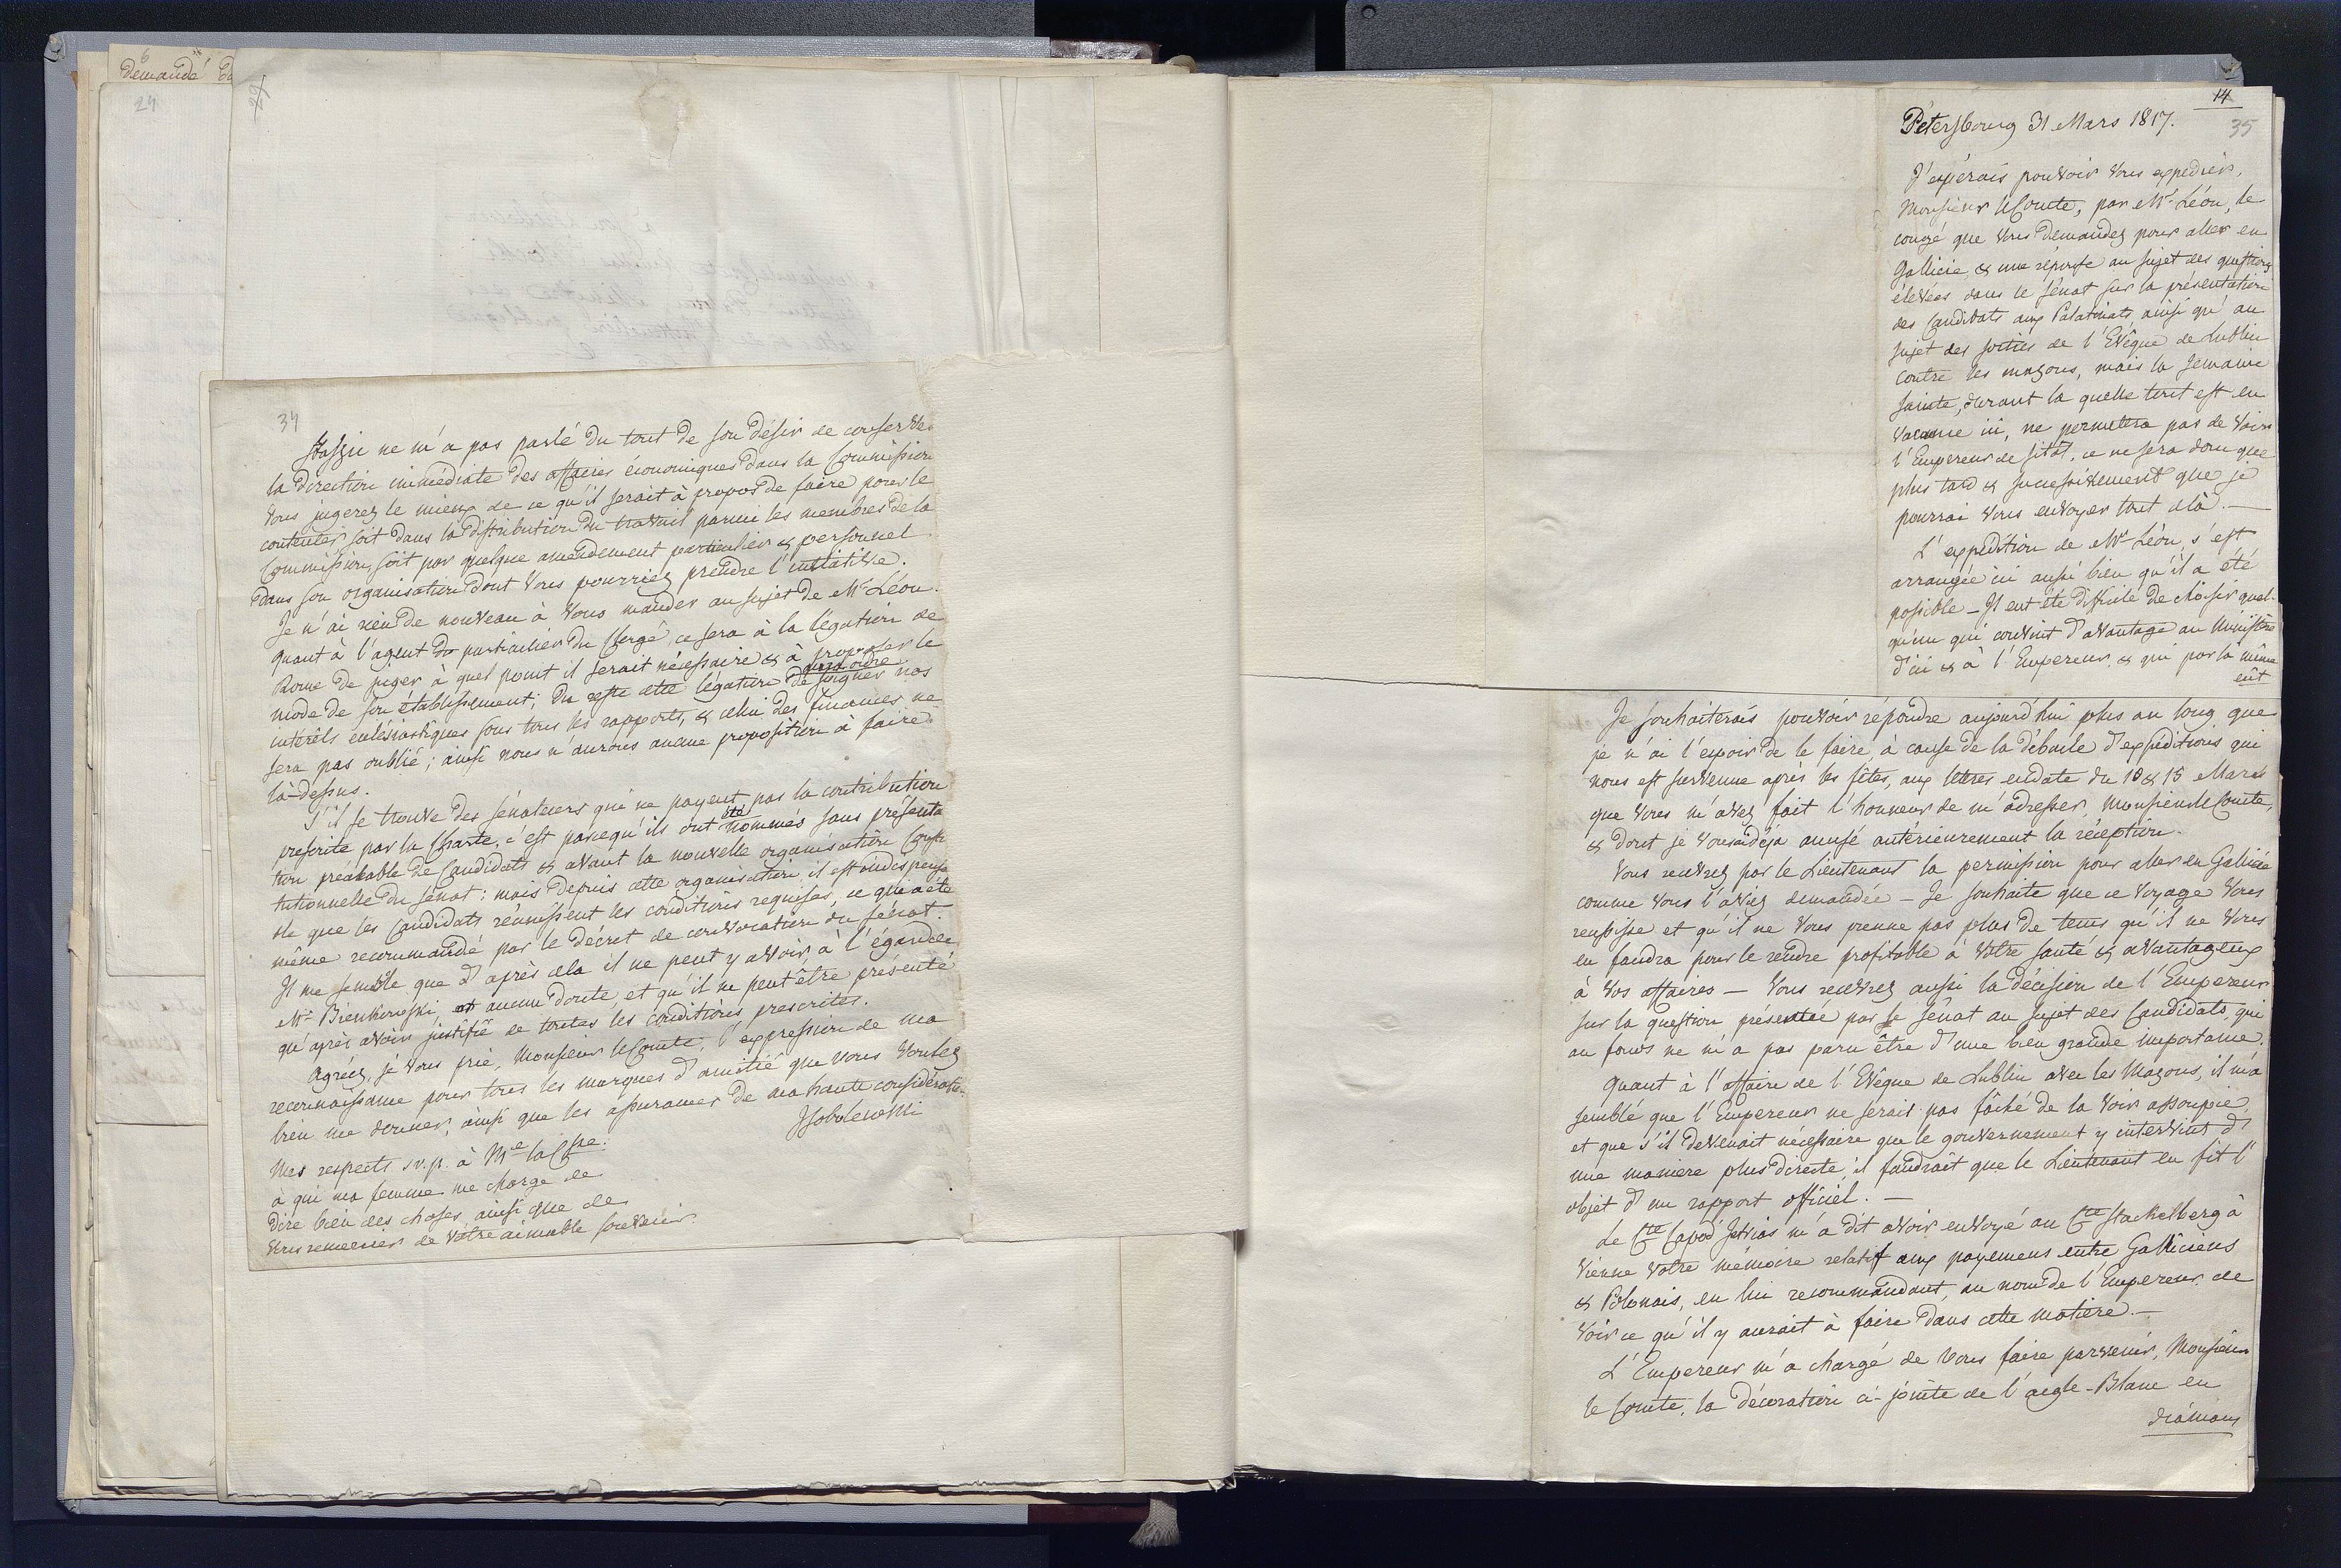 6
demandé
24
34
Staszic ne m'a pas parlé du tout de son désir de conserver
la direction immédiate des affaires économiques dans la Commission
Vous jugerez le mieux de ce qu'il serait à propos de faire pour le
contenter, soit dans la distribution du travail parmi les membres de la
Commission, soit par quelque amendement particulier & personnel
dans son organisation dont Vous pourriez prendre l'initiative.
Je n'ai rien de nouveau à Vous mander au sujet de Mr Léon.
quant à l'agent particulier du Clergé, ce sera à la légation de
Rome de juger à quel point il serait nécessaire & à proposer le
mode de son établissement; du reste cette légation de soigner nos
intérêts eclésiastiques sous tous les rapports, & celui des finances ne
sera pas oublié; ainsi nous n'aurons aucune proposition à faire
là-dessus.
S'il se trouve des sénateurs qui ne payent pas la contribution
prescrite par la Charte, c'est parcequ'ils ont été nommés sans présenta
tion préalable de Candidats & avant la nouvelle organisation Consti
tutionnelle du Sénat: mais depuis cette organisation, il est indispensa
ble que les Candidats réunissent les conditions requises, ce qui a été
même recommandé par le décret de convocation du sénat.
Il me semble que d'après cela il ne peut y avoir, à l'égard de
Mr Bienkowski, aucun doute et qu'il ne peut être présenté
qu'après avoir justifié de toutes les conditions prescrites.
Agréez, je Vous prie, Monsieur le Comte, l'expression de ma
reconnaissance pour tous les marques d'amitié que vous voulez
bien me donner, ainsi que les assurances de ma haute considération.
JSobolewski
Mes respects s.v.p. à Me la Csse
à qui ma femme me charge de
dire bien des choses ainsi que de
Vous remercier de Votre aimable souvenir.
14
35
Pétersbourg 31 Mars 1817.
J'espérais pouvoir Vous expédier,
Monsieur le Comte, par Mr Léon, le
congé que Vous demandez pour aller en
Gallicie, & une réponse au sujet des questions
élevées dans le sénat sur la présentation
des Candidats aux Palatinats, ainsi qu'au
sujet des sorties de l'Evêque de Lublin
contre les maçons, mais la Semaine
sainte, durant la quelle tout est en
vacance ici, ne permettra pas de Voir
l'Empereur de sitôt, ce ne sera donc que
plus tard & successivement que je
pourrai Vous envoyer tout cela. —
L'expédition de Mr Léon s'est
arrangée ici aussi bien qu'il a été
possible — Il eut été difficile de choisir quel-
qu'un qui convint d'avantage au Ministère
d'ici & à l'Empereur, & qui par là même
eût
Je souhaiterais pouvoir répondre aujourd'hui plus au long que
je n'ai l'espoir de le faire, à cause de la débacle d'expéditions qui
nous est survenue après les fêtes, aux lettres en date du 10 & 15 Mars
que Vous m'avez fait l'honneur de m'adresser, Monsieur le Comte,
& dont je Vous ai déja accusé antérieurement la réception.
Vous recevrez par le Lieutenant la permission pour aller en Galicie
comme Vous l'aviez demandée — Je souhaite que ce Voyage Vous
reussisse et qu'il ne Vous prenne pas plus de tems qu'il ne Vous
en faudra pour le rendre profitable à Votre santé & avantageux
à Vos affaires — Vous recevrez aussi la décision de l'Empereur
sur la question présentée par le Sénat au sujet des Candidats, qui
au fonds ne m'a pas paru être d'une bien grande importance.
Quant à l'affaire de l'Evêque de Lublin avec les Maçons, il m'a
semblé que l'Empereur ne serait pas fâché de la voir assoupie,
et que s'il devenait nécessaire que le gouvernement y intervint d'
une maniere plus directe, il faudrait que le Lieutenant en fit l'
objet d'un rapport officiel. —
Le Cte Capod'Istrias m'a dit avoir envoyé au Cte Stackelberg à
Vienne Votre mémoire relatif aux payemens entre Galliciens
& Polonais, en lui recommandant, au nom de l'Empereur, de
Voir ce qu'il y aurait à faire dans cette matière. —
L'Empereur m'a chargé de Vous faire parvenir, Monsieur
le Comte, la décoration ci-jointe de l'aigle-Blanc en
diamans